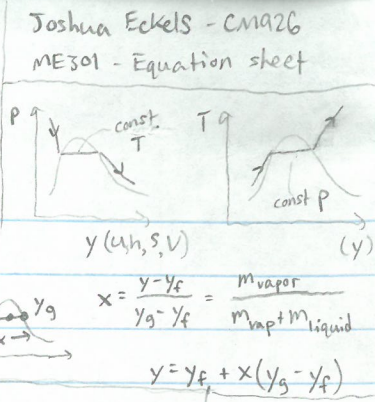 Joshua Eckels - CM926
ME301 - Equation sheet
P
const.
T
T
const P
y (u,h,s,v)
(y)
yg
x = (y-yf)/(yg-yf) = m vapor/(m vap + m liquid)
x →
y = yf + x(yg - yf)